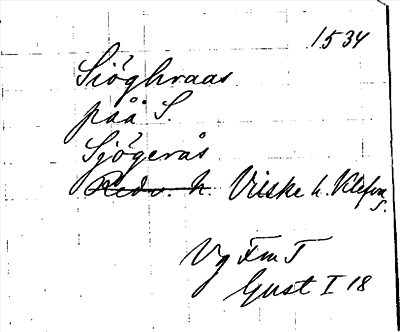 1534
Siöghraas
påå S.
Sjögerås
Redv. h. Vilske h. Klefva s.
Vg FmT
Gust I 18